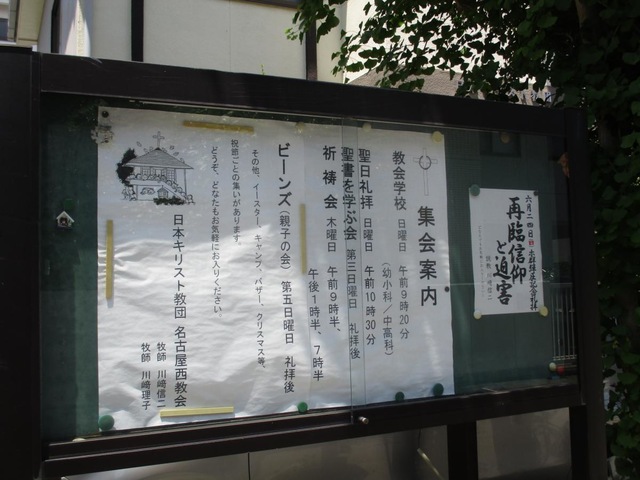 六月二四日(日) 
再臨信仰
と迫害
集会案内
教会学校 日曜日 午前9時20分
(幼小科/中高科)
聖日礼拝 日曜日 午前10時30分
聖書を学ぶ会 第三日曜日 礼拝後
祈祷会 木曜日 午前9時半、
午後1時半、7時半
ビーンズ(親子の会) 第五日曜日 礼拝後
その他、イースター、キャンプ、バザー、クリスマス等、
祝節ごとの集いがあります。
どうぞ、どなたもお気軽にお入りください。
日本キリスト教団 名古屋西教会
牧師 川﨑信二
牧師 川﨑理子